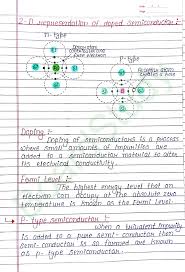 2-D representation of doped semiconductor :-
n-type
P-type
Si
Si
Si
Si
Si
Si
Doping :-
Doping of semiconductors is a process
where small amounts of impurities are
added to a semiconductor material to alter
its electrical conductivity.
Fermi Level :-
The highest energy level that an
electron can occupy at the absolute zero
temperature is known as the Fermi Level.
P-type semiconductor :-
When a trivalent impurity
is added to a pure semi-conductor then
semi-conductor is so formed are known
as p-type semiconductor.